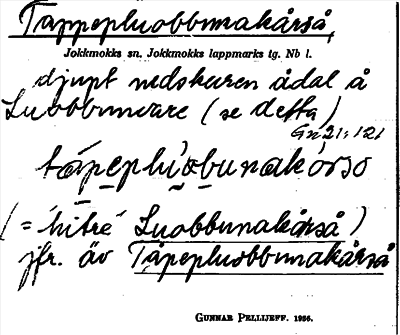 Tappepluobbunakårså,
Jokkmokks sn. Jokkmokks lappmarks tg. Nb l.
djupt nedskuren ådal å
Luobbunvare (se detta)
Gn 21:121
tápepluobunakårso
(= 'hitre' Luobbunakårså)
jfr. äv Tåpepluobbunakårså
GUNNAR PELLIJEFF. 1956.